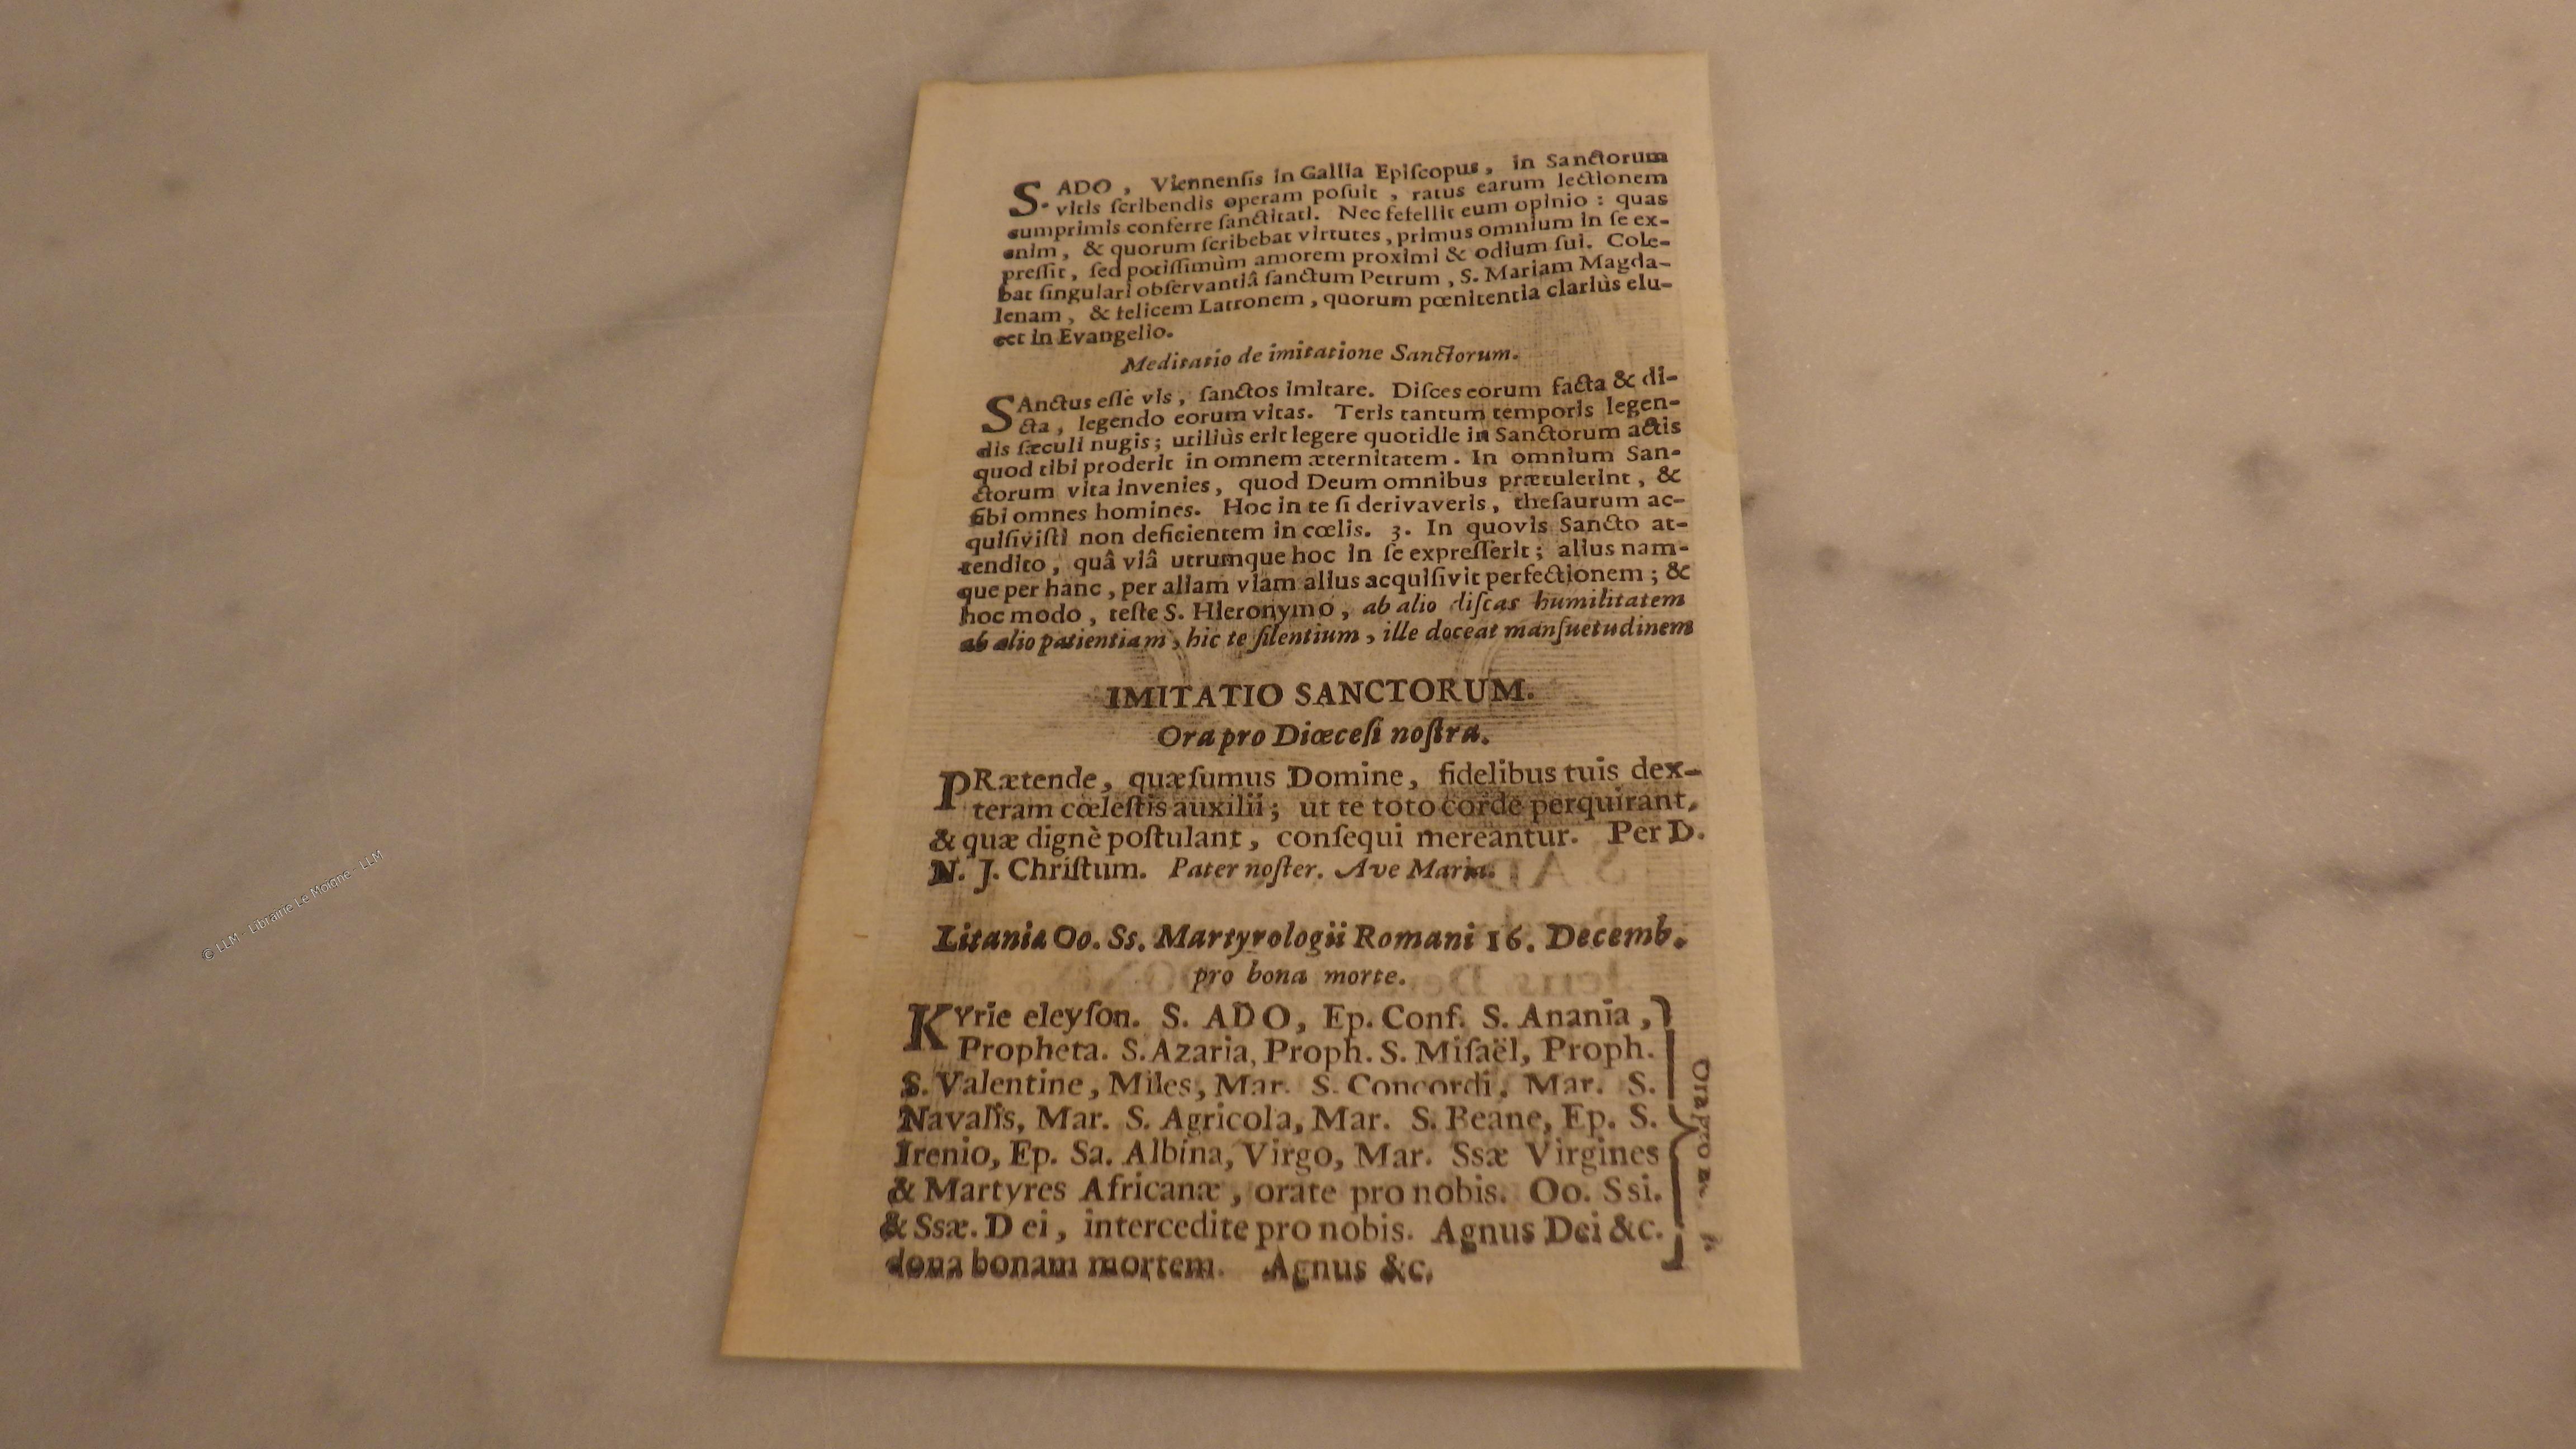 S. ADO, Viennenſis in Gallia Epiſcopus, in Sanctorum
vitis ſcribendis operam poſuit, ratus earum lectionem
cumprimis conferre ſanctitati. Nec fefellit eum opinio: quas
enim, & quorum ſcribebat virtutes, primus omnium in ſe ex-
preſſit, ſed potiſſimùm amorem proximi & odium ſui. Cole-
bat ſingulari obſervantiâ ſanctum Petrum, S. Mariam Magda-
lenam, & felicem Latronem, quorum pœnitentia clariùs elu-
cet in Evangelio.
Meditatio de imitatione Sanctorum.
SAnctus eſſe vis, ſanctos imitare. Diſces eorum facta & di-
cta, legendo eorum vitas. Teris tantum temporis legen-
dis ſæculi nugis; utiliùs erit legere quotidie in Sanctorum actis
quod tibi proderit in omnem æternitatem. In omnium San-
ctorum vita invenies, quod Deum omnibus prætulerint, &
ſibi omnes homines. Hoc in te ſi derivaveris, theſaurum ac-
quiſiviſti non deficientem in cœlis. 3. In quovis Sancto at-
tendito, quâ viâ utrumque hoc in ſe expreſſerit; alius nam-
que per hanc, per aliam viam alius acquiſivit perfectionem; &
hoc modo, teſte S. Hieronymo, ab alio diſcas humilitatem
ab alio patientiam, hic te ſilentium, ille doceat manſuetudinem
IMITATIO SANCTORUM.
Ora pro Diœceſi noſtra.
PRætende, quæſumus Domine, fidelibus tuis dex-
teram cœleſtis auxilii; ut te toto corde perquirant,
& quæ dignè poſtulant, conſequi mereantur. Per D.
N. J. Chriſtum. Pater noſter. Ave Maria.
Litaniæ Oo. Ss. Martyrologii Romani 16. Decemb.
pro bona morte.
KYrie eleyſon. S. ADO, Ep. Conf. S. Anania,
Propheta. S. Azaria, Proph. S. Miſaël, Proph.
S. Valentine, Miles, Mar. S. Concordi, Mar. S.
Navalis, Mar. S. Agricola, Mar. S. Beane, Ep. S.
Irenio, Ep. Sa. Albina, Virgo, Mar. Ssæ Virgines
& Martyres Africanæ, orate pro nobis. Oo. Ssi.
& Ssæ. Dei, intercedite pro nobis. Agnus Dei &c.
dona bonam mortem. Agnus &c.
Ora pro
© LLM - Librairie Le Moïgne - LLM